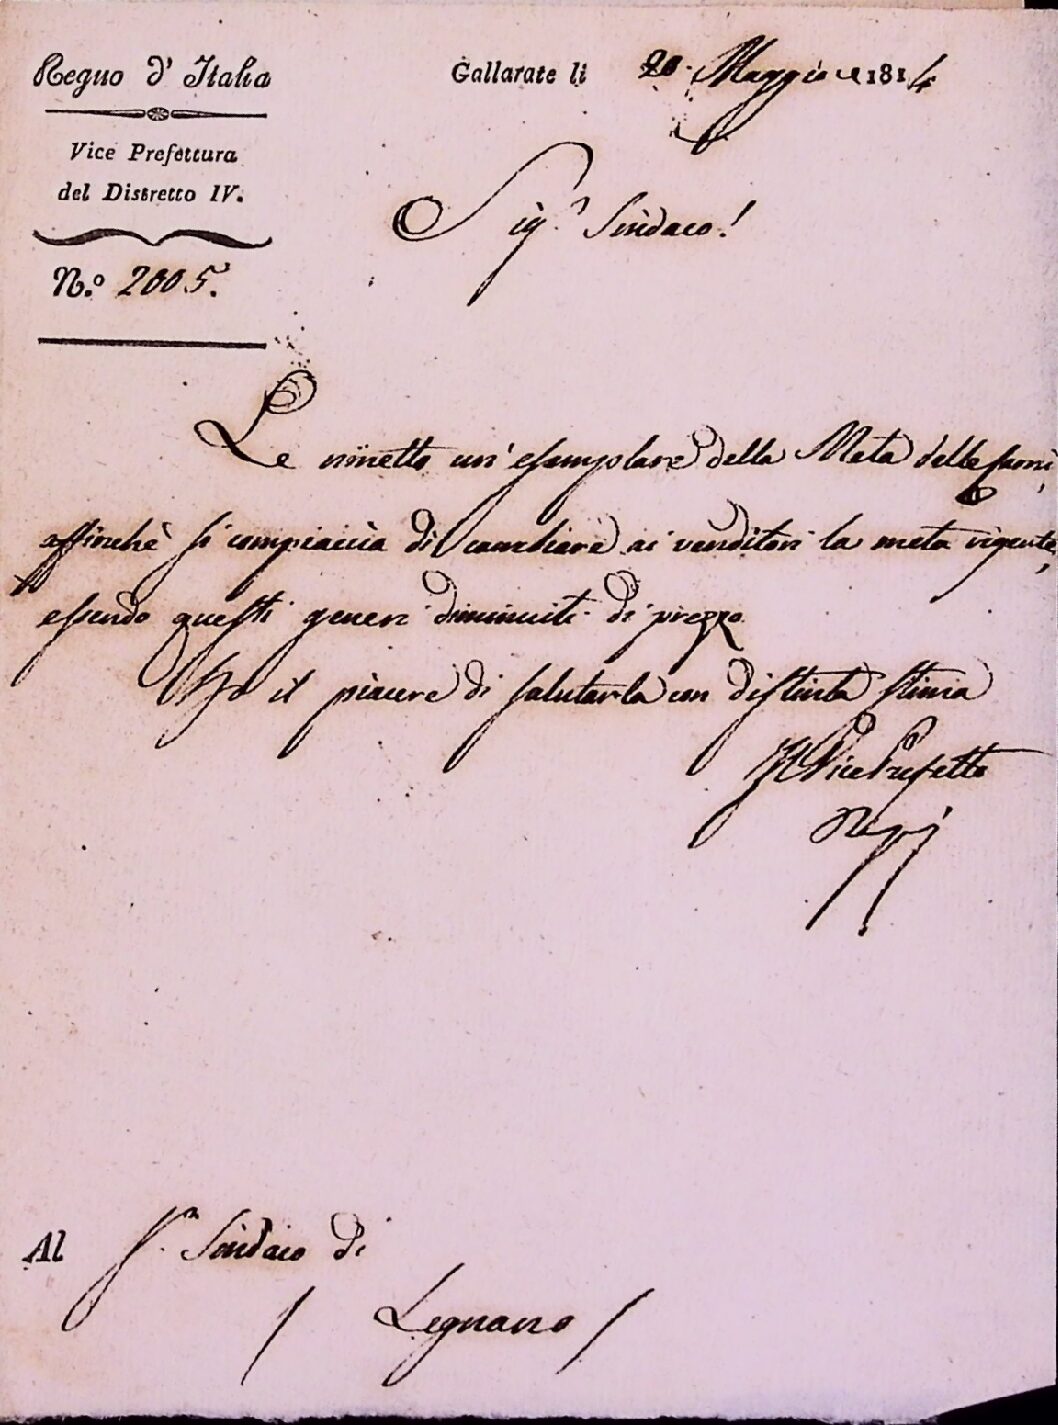 Regno d' Italia
Vice Prefettura
del Distretto IV.
N.º 2005.
Gallarate li 20. Maggio 1814
Sig.r Sindaco!
Le rimetto un' esemplare della Meta delle
affinchè si compiaccia di cambiare ai venditori la meta vigente,
essendo questi generi diminuiti di prezzo.
Ho il piacere di salutarla con distinta stima
Il Vice Prefetto
Al S.r Sindaco di
Legnano